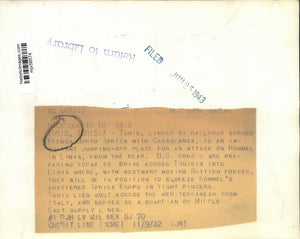 Return to Library
FILED
JUN 25 1943
TUNIS, TUNISIA - TUNIS, LINKED BY RAILROAD ACROSS
FRENCH NORTH AFRICA WITH CASABLANCA, IS AN IM-
JUMPING-OFF PLACE FOR AN ATTACK ON ROMMEL
IN LIBYA, FROM THE REAR. U.S. FORCES ARE PRE-
PARING TODAY TO DRIVE ACROSS TUNISIA INTO
LIBYA WHERE, WITH WESTWARD MOVING BRITISH FORCES,
THEY WILL BE IN POSITION TO SQUEEZE ROMMEL'S
SHATTERED AFRIKA KORPS IN TIGHT PINCERS.
TUNIS LIES JUST ACROSS THE MEDITERRANEAN FROM
ITALY, AND SERVES AS A GUARDIAN OF MIDDLE
EAST SUPPLY LINES.
BUR LV MIL MEX SJ 70
CREDIT LINE (ACME) 11/9/42 (JR)